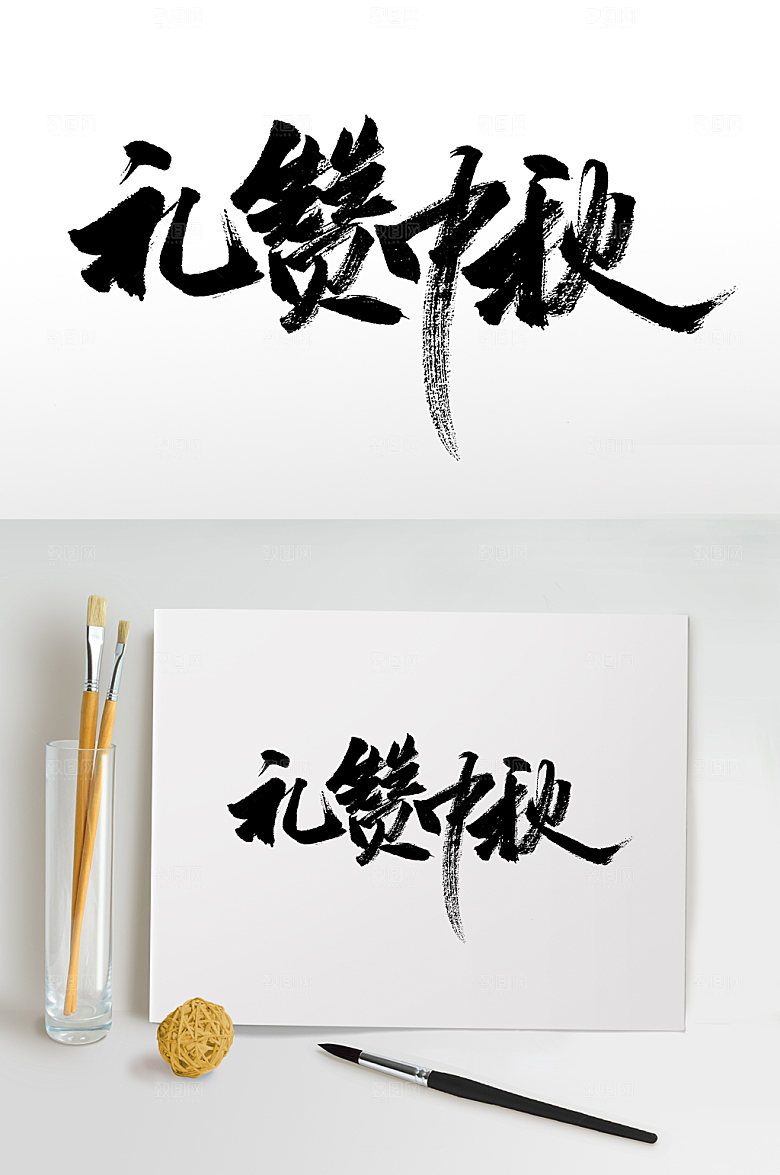 礼赞中秋
礼赞中秋